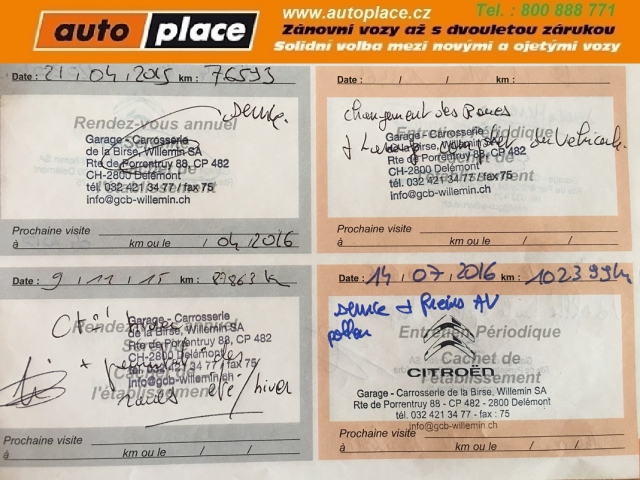 www.autoplace.cz
Tel. : 800 888 771
auto place
Zánovní vozy až s dvouletou zárukou
Solidní volba mezi novými a ojetými vozy
Date : 21 / 04 / 2015 km : 76593
service.
Rendez-vous annuel
Garage - Carrosserie
de la Birse, Willemin SA
Rte de Porrentruy 88, CP 482
CH-2800 Delémont
tél. 032 421 34 77 / fax 75
info@gcb-willemin.ch
Prochaine visite
à km ou le / 04 / 2016
Date : / / km :
changement des roues
Entretien Périodique
Garage - Carrosserie
de la Birse, Willemin SA
Rte de Porrentruy 88, CP 482
CH-2800 Delémont
tél. 032 421 34 77 / fax 75
info@gcb-willemin.ch
Prochaine visite
à km ou le / /
Date : 9 / 11 / 15 km : 87863 km
Rendez-vous annuel
Garage - Carrosserie
de la Birse, Willemin SA
Rte de Porrentruy 88, CP 482
CH-2800 Delémont
tél. 032 421 34 77 / fax 75
info@gcb-willemin.ch
+ des
roues été/hiver
l'établissement
Prochaine visite
à km ou le / /
Date : 14 / 07 / 2016 km : 102399 km
service + freins AV
pollen
Entretien Périodique
Cachet de
CITROËN
l'établissement
Garage - Carrosserie de la Birse, Willemin SA
Rte de Porrentruy 88 - CP 482 - 2800 Delémont
tél. 032 421 34 77 - fax : 75
info@gcb-willemin.ch
Prochaine visite
à km ou le / /